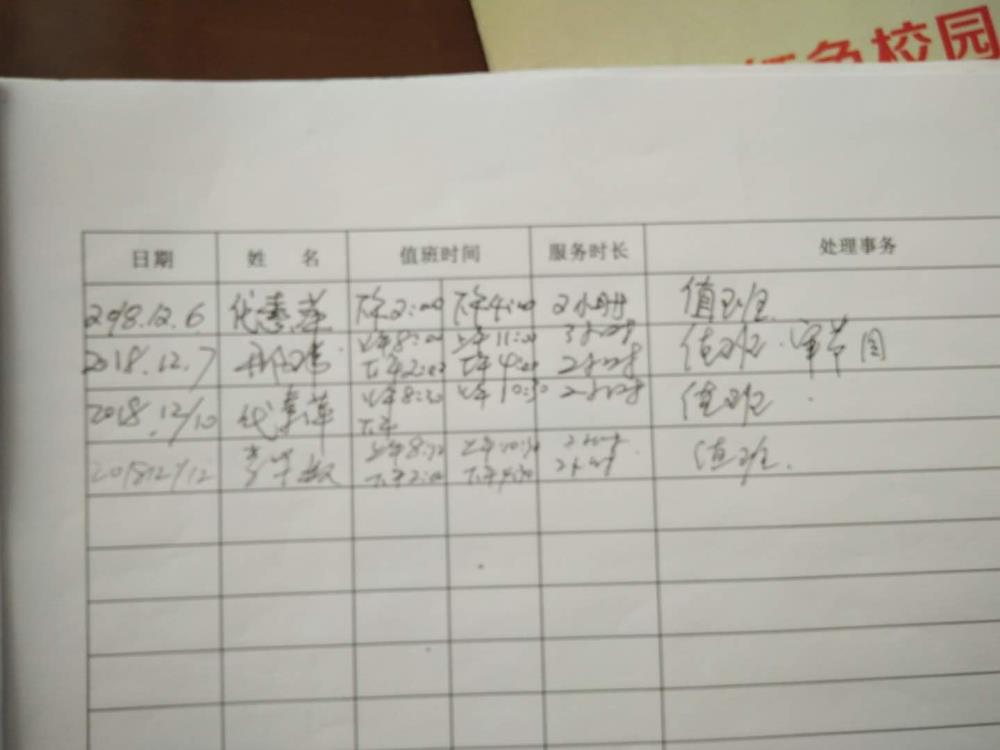 色校园
日期 姓 名 值班时间 服务时长 处理事务
2018.12.6 代 下午2:00 下午4:00 2小时 值班
2018.12.7 上午8:00 上午11:00 3小时 值班
下午2:00 下午4:00 2小时
2018.12/10 代 上午8:30 上午10:30 2小时 值班
下午
2018 12/12 上午8:30 上午10:30 2小时 值班.
下午2:00 下午4:00 2小时